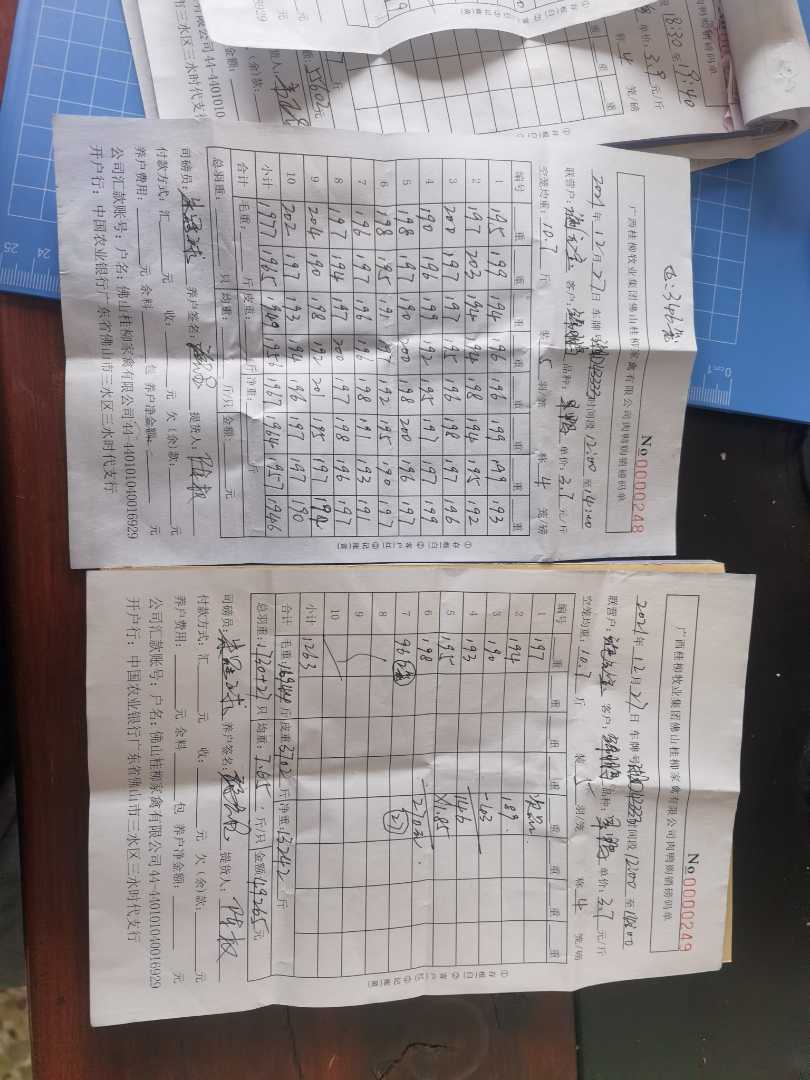 18:30 至 19:40
单价: 3.9 元/斤
称 4 笼/磅
公司 44-4401010
市三水区三水时代支行
总: 346笼
广西桂柳牧业集团佛山桂柳家禽有限公司肉鸭购销磅码单
No 0000248
2021年 12月 27日 车牌 时间段 12:00 至 14:00
联营户: 客户: 品种: 单价: 3.7 元/斤
空笼均重: 10.7 斤 装 5 羽/笼 称 4 笼/磅
编号 重 重 重 重 重 重 重 重
1 195 199 194 196 196 199 199 193
2 197 203 194 194 198 194 195 192
3 200 197 197 195 196 198 197 196
4 190 196 199 192 195 197 197 199
5 198 197 190 200 198 200 196 197
6 198 195 191 197 192 195 190 197
7 196 197 196 196 198 191 193 191
8 197 194 197 200 197 198 196 197
9 204 190 198 192 201 195 197 194
10 202 197 193 194 196 197 197 190
小计 1977 1965 1949 1956 1967 1964 1957 1946
合计 毛重: 斤 皮重: 斤 净重: 斤
总羽重: 只 均重: 斤/只 金额: 元
司磅员: 养户签名: 提货人:
付款方式: 汇 元 收: 元 欠(余)款: 元
养户费用: 元 余料 包 养户净金额: 元
公司汇款账号: 户名: 佛山桂柳家禽有限公司 44-440101040016929
开户行: 中国农业银行广东省佛山市三水区三水时代支行
①存根(白) ②客户(红) ③记账(黄)
广西桂柳牧业集团佛山桂柳家禽有限公司肉鸭购销磅码单
No 0000249
2021年 12月 27日 车牌号 时间段 12:00 至 14:00
联营户: 客户: 品种: 单价: 3.7 元/斤
空笼均重: 10.7 斤 装 5 羽/笼 称 4 笼/磅
编号 重 重 重 重 重 重 重 重
1 197 次品
2 194 189
3 190 -43
4 193 146
5 195 ×1.85
6 198 -270元
7 96 27
8
9
10
小计 1263
合计 毛重: 16944 斤 皮重 3702 斤 净重: 13242 斤
总羽重: 1730+27 只 均重: 7.65 斤/只 金额 49265 元
司磅员: 养户签名: 提货人:
付款方式: 汇 元 收: 元 欠(余)款: 元
养户费用: 元 余料 包 养户净金额: 元
公司汇款账号: 户名: 佛山桂柳家禽有限公司 44-440101040016929
开户行: 中国农业银行广东省佛山市三水区三水时代支行
①存根(白) ②客户(红) ③记账(黄)